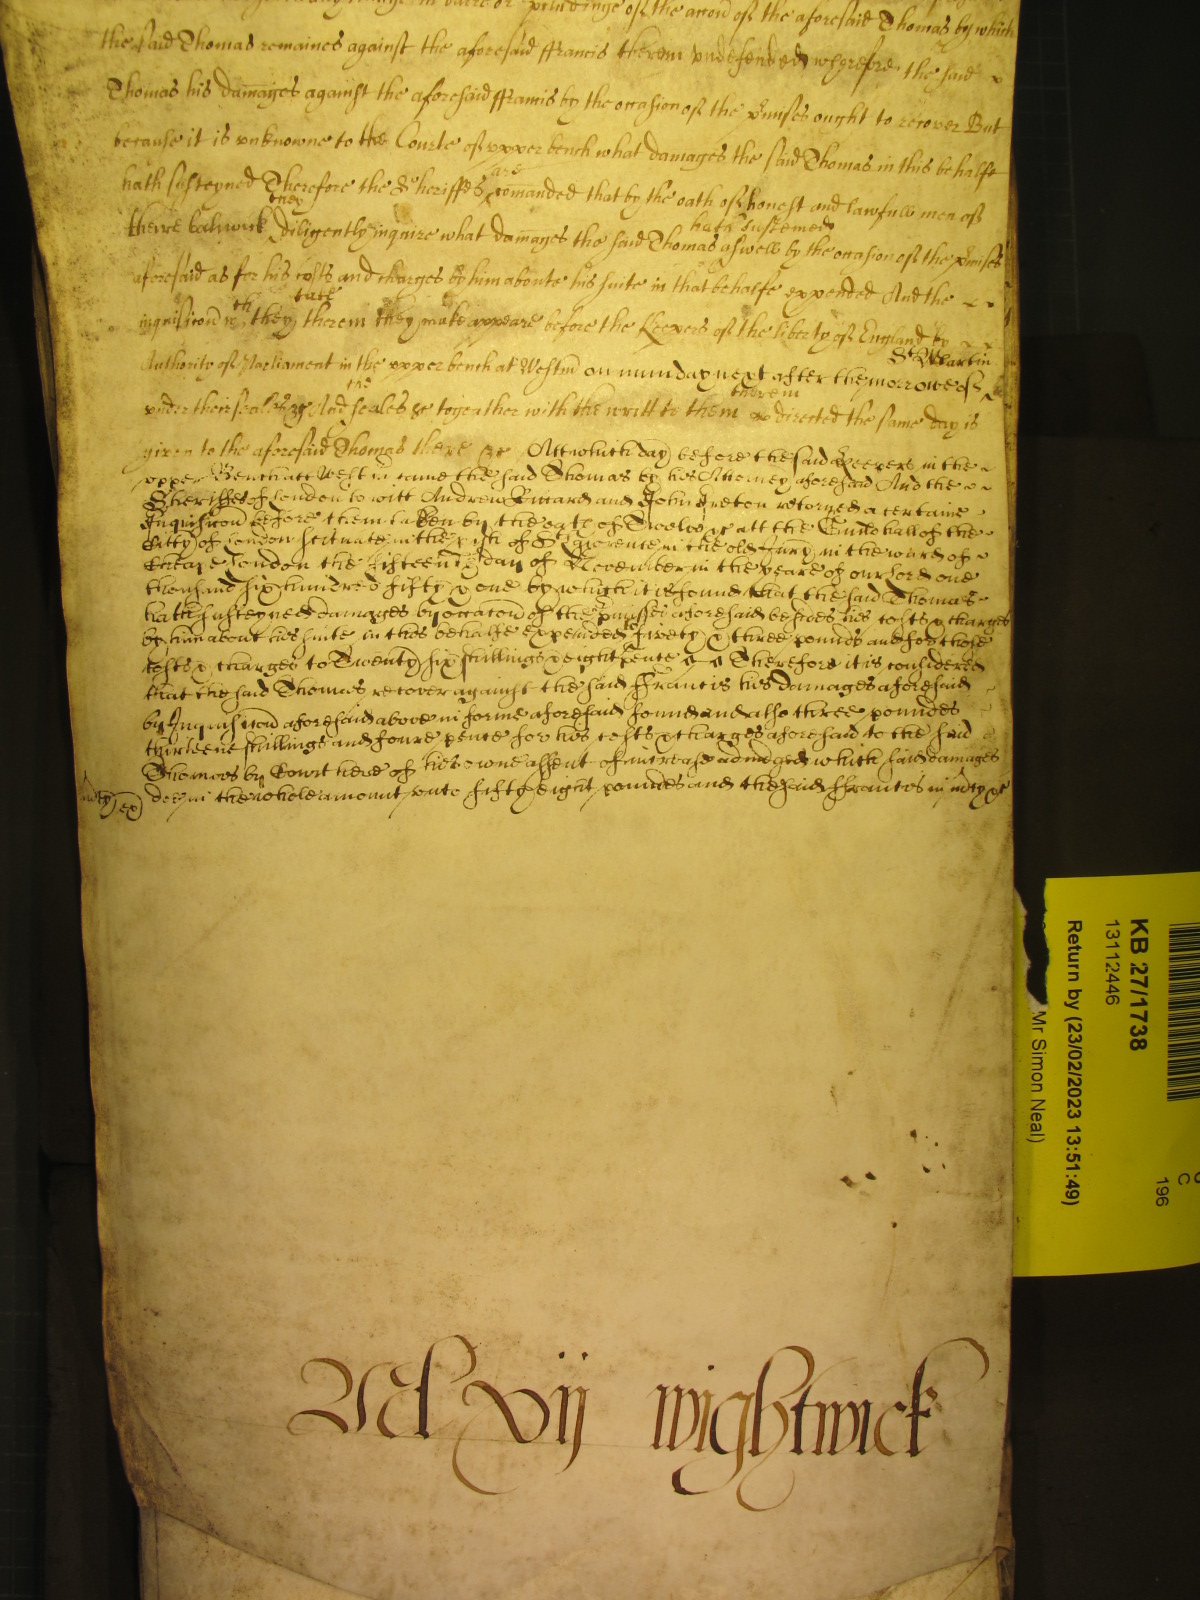 in barre or of the accon of the aforesaid Thomas by which
the said Thomas remaines against the aforesaid ffrancis therein undefended wherefore the said
Thomas his damages against the aforesaid ffrancis by the occasion of the pmises ought to recover But
because it is unknowne to the Courte of upper bench what damages the said Thomas in this behalfe
hath susteyned Therefore the Sheriffes are comanded that by the oath of honest and lawfull men of
theire baliwick they diligently inquire what damages the said Thomas hath susteined aswell by the occasion of the pmises
aforesaid as for his costs and charges by him aboute his suite in that behalfe expended And the
inquisicon wch they shall take therein they make appeare before the Keepers of the liberty of England by
Authority of Parliament in the upper bench at Westm on munday next after the morrowe of St Martin
under their seales &c And the seales &c togeather with the writt to them therein directed the same day is
given to the aforesaid Thomas there &c Att which day before the said Keepers in the
upper Bench att Westm came the said Thomas by his Attorney aforesaid And the
Sheriffes of London to witt Andrew Ricard and John Ireton retorned a certaine
Inquisicon before them taken by the oath of twelve &c att the Guildhall of the
Citty of London scituate in the pish of St Laurence in the old Jury in the ward of
Cheape London the fifteenth day of November in the yeare of our lord one
thousand six hundred fifty & one by which it is found that the said Thomas
hath susteyned damages by occacon of the pmisses aforesaid besides his costs & charges
by him about his suite in this behalfe expended to fivety & three pounds and for those
costs & charges to Twenty six shillings & eight pence Therefore it is considered
that the said Thomas recover against the said ffrancis his damages aforesaid
by Inquisicon aforesaid above in forme aforesaid found and also three poundes
thirteene shillings and foure pence for his costs & charges aforesaid to the said
Thomas by Court here of his owne assent of increase adiudged which said damages
doe in the whole amount unto fifty eight poundes and the said ffrancis in mcy &c
mcy
Ml xvij wightwick
KB 27/1738
13112446
Return by (23/02/2023 13:51:49)
Mr Simon Neal)
C
196